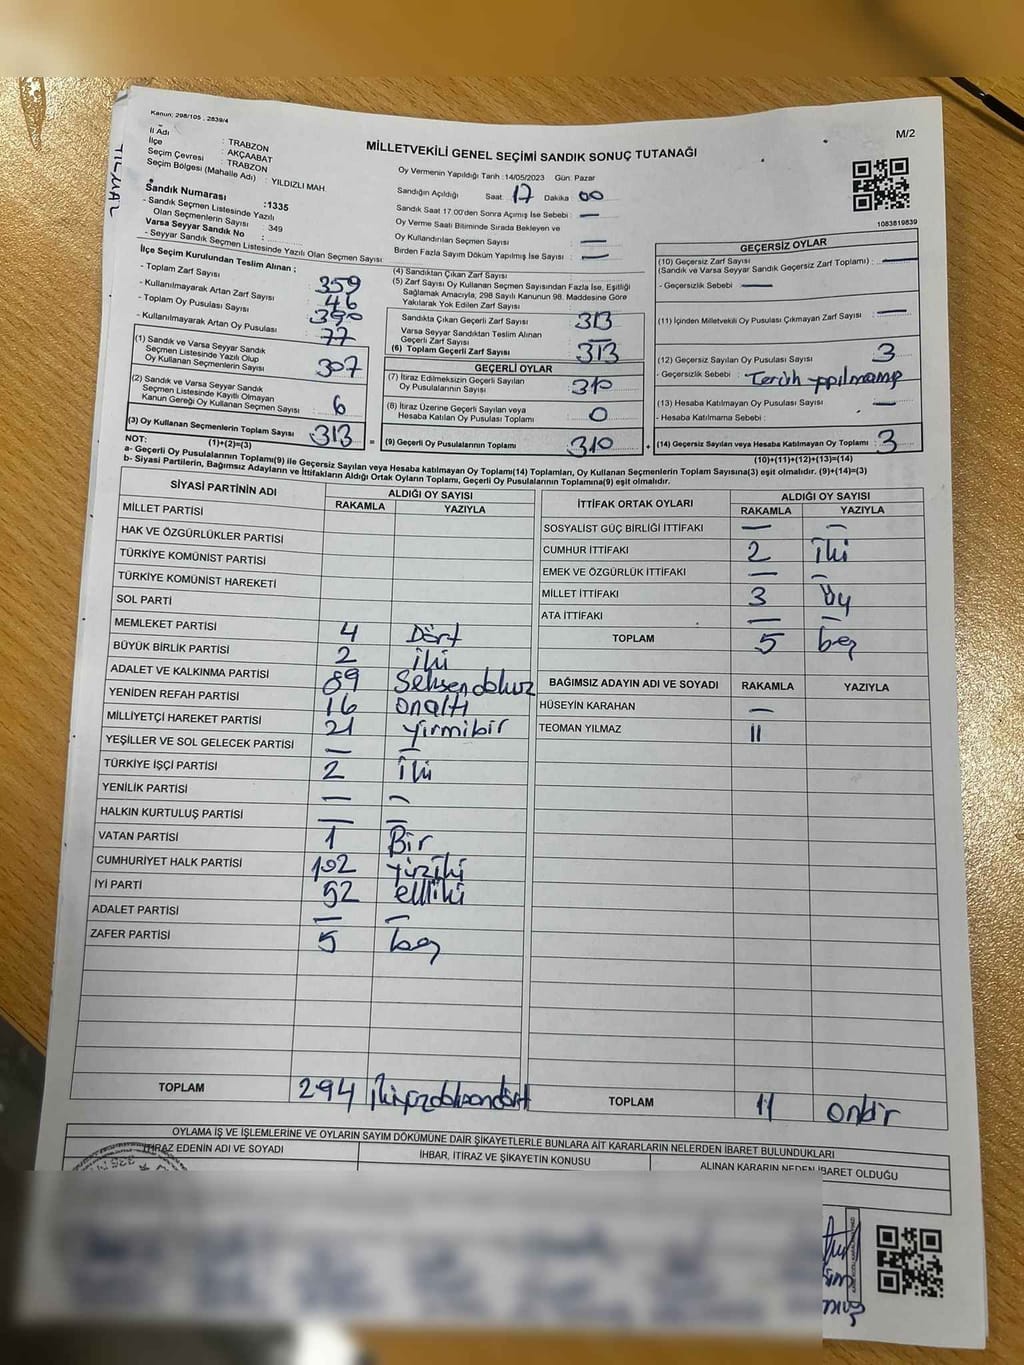 Kanun: 298/105 , 2839/4
M/2
MİLLETVEKİLİ GENEL SEÇİMİ SANDIK SONUÇ TUTANAĞI
İl Adı : TRABZON
İlçe : AKÇAABAT
Seçim Çevresi : TRABZON
Seçim Bölgesi (Mahalle Adı) : YILDIZLI MAH
Sandık Numarası :1335
- Sandık Seçmen Listesinde Yazılı
Olan Seçmenlerin Sayısı : 349
Varsa Seyyar Sandık No :
- Seyyar Sandık Seçmen Listesinde Yazılı Olan Seçmen Sayısı :
Oy Vermenin Yapıldığı Tarih :14/05/2023 Gün: Pazar
Sandığın Açıldığı Saat 17 Dakika 00
Sandık Saat 17.00'den Sonra Açımış İse Sebebi : —
Oy Verme Saati Bitiminde Sırada Bekleyen ve
Oy Kullandırılan Seçmen Sayısı : —
Birden Fazla Sayım Döküm Yapılmış İse Sayısı : —
1083819839
İlçe Seçim Kurulundan Teslim Alınan ;
- Toplam Zarf Sayısı : 359
- Kullanılmayarak Artan Zarf Sayısı : 46
- Toplam Oy Pusulası Sayısı : 390
- Kullanılmayarak Artan Oy Pusulası : 77
(1) Sandık ve Varsa Seyyar Sandık
Seçmen Listesinde Yazılı Olup
Oy Kullanan Seçmenlerin Sayısı : 307
(2) Sandık ve Varsa Seyyar Sandık
Seçmen Listesinde Kayıtlı Olmayan
Kanun Gereği Oy Kullanan Seçmen Sayısı : 6
(3) Oy Kullanan Seçmenlerin Toplam Sayısı : 313
(1)+(2)=(3)
(4) Sandıktan Çıkan Zarf Sayısı :
(5) Zarf Sayısı Oy Kullanan Seçmen Sayısından Fazla İse, Eşitliği
Sağlamak Amacıyla, 298 Sayılı Kanunun 98. Maddesine Göre
Yakılarak Yok Edilen Zarf Sayısı :
Sandıkta Çıkan Geçerli Zarf Sayısı : 313
Varsa Seyyar Sandıktan Teslim Alınan
Geçerli Zarf Sayısı : —
(6) Toplam Geçerli Zarf Sayısı : 313
GEÇERLİ OYLAR
(7) İtiraz Edilmeksizin Geçerli Sayılan
Oy Pusulalarının Sayısı : 310
(8) İtiraz Üzerine Geçerli Sayılan veya
Hesaba Katılan Oy Pusulası Toplamı : 0
= (9) Geçerli Oy Pusulalarının Toplamı : 310
GEÇERSİZ OYLAR
(10) Geçersiz Zarf Sayısı
(Sandık ve Varsa Seyyar Sandık Geçersiz Zarf Toplamı) : —
- Geçersizlik Sebebi : —
(11) İçinden Milletvekili Oy Pusulası Çıkmayan Zarf Sayısı : —
(12) Geçersiz Sayılan Oy Pusulası Sayısı : 3
- Geçersizlik Sebebi :
(13) Hesaba Katılmayan Oy Pusulası Sayısı : —
- Hesaba Katılmama Sebebi :
+ (14) Geçersiz Sayılan veya Hesaba Katılmayan Oy Toplamı : 3
(10)+(11)+(12)+(13)=(14)
NOT:
a- Geçerli Oy Pusulalarının Toplamı(9) ile Geçersiz Sayılan veya Hesaba katılmayan Oy Toplamı(14) Toplamları, Oy Kullanan Seçmenlerin Toplam Sayısına(3) eşit olmalıdır. (9)+(14)=(3)
b- Siyasi Partilerin, Bağımsız Adayların ve İttifakların Aldığı Ortak Oyların Toplamı, Geçerli Oy Pusulalarının Toplamına(9) eşit olmalıdır.
SİYASİ PARTİNİN ADI ALDIĞI OY SAYISI
RAKAMLA YAZIYLA
MİLLET PARTİSİ
HAK VE ÖZGÜRLÜKLER PARTİSİ
TÜRKİYE KOMÜNİST PARTİSİ
TÜRKİYE KOMÜNİST HAREKETİ
SOL PARTİ
MEMLEKET PARTİSİ 4 Dört
BÜYÜK BİRLİK PARTİSİ 2 İki
ADALET VE KALKINMA PARTİSİ 89 Seksendokuz
YENİDEN REFAH PARTİSİ 16 onaltı
MİLLİYETÇİ HAREKET PARTİSİ 21 yirmibir
YEŞİLLER VE SOL GELECEK PARTİSİ — —
TÜRKİYE İŞÇİ PARTİSİ 2 İki
YENİLİK PARTİSİ — —
HALKIN KURTULUŞ PARTİSİ — —
VATAN PARTİSİ 1 Bir
CUMHURİYET HALK PARTİSİ 102 yüziki
İYİ PARTİ 52 elliiki
ADALET PARTİSİ — —
ZAFER PARTİSİ 5 beş
TOPLAM 294 İkiyüzdoksandört
İTTİFAK ORTAK OYLARI ALDIĞI OY SAYISI
RAKAMLA YAZIYLA
SOSYALİST GÜÇ BİRLİĞİ İTTİFAKI — —
CUMHUR İTTİFAKI 2 İki
EMEK VE ÖZGÜRLÜK İTTİFAKI — —
MİLLET İTTİFAKI 3 Üç
ATA İTTİFAKI — —
TOPLAM 5 beş
BAĞIMSIZ ADAYIN ADI VE SOYADI RAKAMLA YAZIYLA
HÜSEYİN KARAHAN —
TEOMAN YILMAZ 11
TOPLAM 11 onbir
OYLAMA İŞ VE İŞLEMLERİNE VE OYLARIN SAYIM DÖKÜMÜNE DAİR ŞİKAYETLERLE BUNLARA AİT KARARLARIN NELERDEN İBARET BULUNDUKLARI
İTİRAZ EDENİN ADI VE SOYADI
İHBAR, İTİRAZ VE ŞİKAYETİN KONUSU
ALINAN KARARIN NEDEN İBARET OLDUĞU